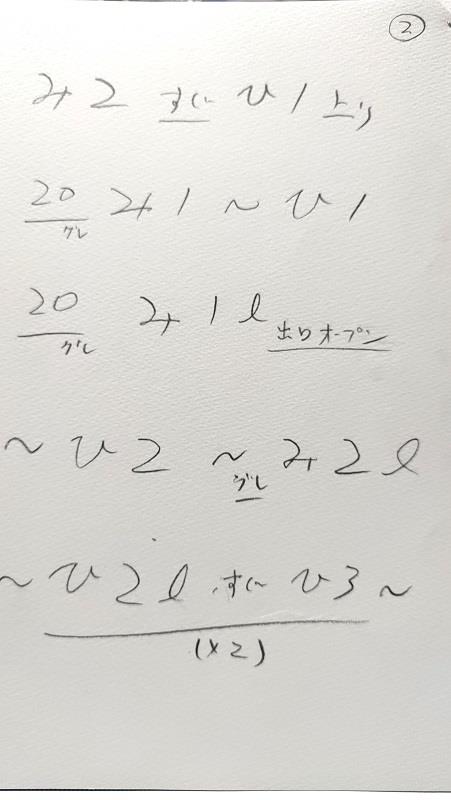 ②
み2 すぐ ひ1 上り
20 グレ み1 ~ ひ1
20 グレ み1 l 出りオープン
~ ひ2 ~ グレ み2 l
~ ひ2 l すぐ ひ3 ~
(×2)